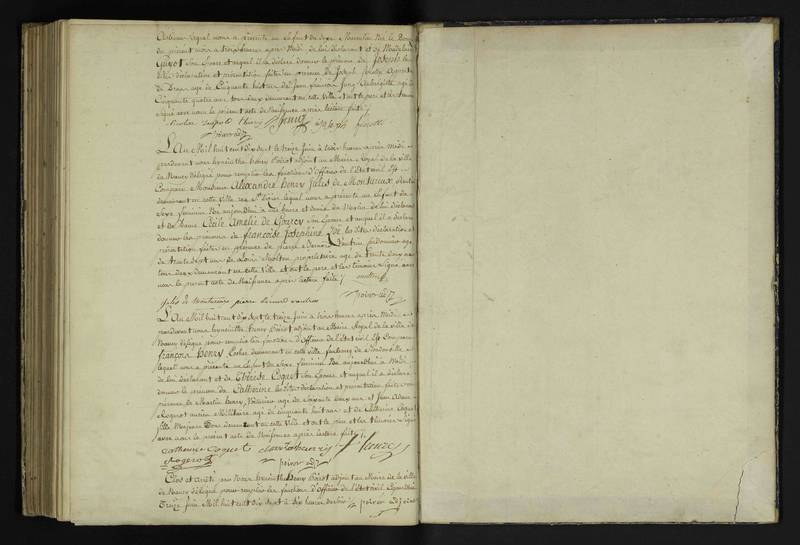 duquel nous a présenté un Enfant du Sexe Masculin Né le
du présent mois à trois heures après Midi de lui déclarant et de Madelaine
Guyot son Epouse et auquel il a déclaré donner le prénom de Joseph les
dites déclaration et présentation faites en présence de Joseph
de Bras agé de Cinquante huit ans et Jean François Jung Aubergiste agé de
Cinquante quatre ans tous deux demeurant en cette Ville et ont le pere et les temoins
signé avec nous le présent acte de Naissance après lecture faite /.
Nicolas thiery Jung
poirot adj
L'An Mil huit cent dix sept le treize Juin à trois heures après Midi
pardevant nous hyacinthe henry Poirot adjoint au Maire Royal de la ville
de Nancy délégué pour remplir les fonctions d'Officier de l'Etat civil Est
Comparu Monsieur Alexandre henry Jules de Montureux
demeurant en cette ville rue St Dizier lequel nous a présenté un Enfant du
Sexe féminin Né aujourd'hui à une heure et demie du Matin de lui déclarant
et de Dame Cécile Amélie de Gourcy son Epouse et auquel il a déclaré
donner les prénoms de françoise Josephine Les dites déclaration et
présentation faites en présence de pierre Bernard Vautrin agé
de trente sept ans et de Louis Molton propriétaire agé de trente deux ans
tous deux demeurant en cette Ville et ont le pere et les temoins signé avec
nous le présent acte de Naissance après lecture faite /.
Jules de Montureux pierre Bernard vautrin
poirot adj
L'An Mil huit cent dix sept le treize Juin à trois heures après Midi
pardevant nous hyacinthe henry Poirot adjoint au Maire Royal de la ville de
Nancy délégué pour remplir les fonctions d'Officier de l'Etat civil Est Comparu
françois henry Cocher demeurant en cette ville faubourg de
lequel nous a présenté un Enfant du Sexe féminin Né aujourd'hui à Midi
de lui déclarant et de Thérèse Coquet son Epouse et auquel il a déclaré
donner le prénom de Catherine les dites déclaration et présentation faites en
présence de Martin henry Voiturier agé de soixante deux ans et Jean Adam
Rogerot ancien Militaire agé de cinquante huit ans et de Catherine Coquet
fille Majeure tous demeurant en cette Ville et ont le père et les temoins signé
avec nous le présent acte de Naissance après lecture faite /.
catherine coquet henry
Rogerot
poirot adj
Clos et arrêté par Nous hyacinthe henry Poirot adjoint au Maire de la ville
de Nancy délégué pour remplir les fonctions d'Officier de l'Etat civil Cejourd'hui
Treize Juin Mil huit cent dix sept à six heures du soir /. poirot adjoint